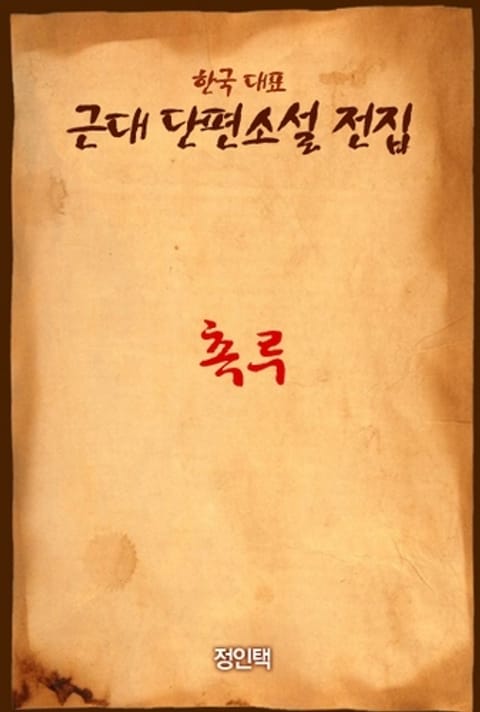 한국 대표
근대 단편소설 전집
촉루
정인택